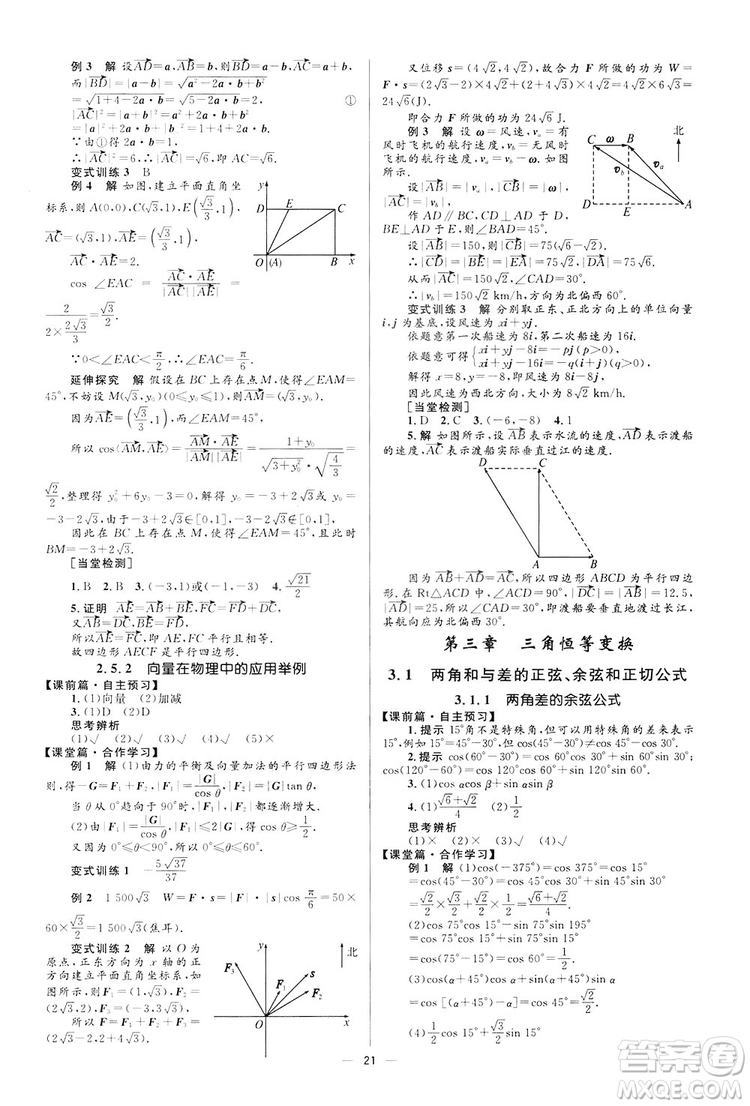 例 3 解 设AD=a,AB=b,则BD=a-b,AC=a+b,
而|BD|=|a-b|=√(a²-2a·b+b²)
=√(1+4-2a·b)=√(5-2a·b)=2, ①
|AC|²=|a+b|²=a²+2a·b+b²
=|a|²+2a·b+|b|²=1+4+2a·b.
∵由①得2a·b=1,∴|AC|²=6.
∴|AC|=√6,即AC=√6.
变式训练 3 B
例 4 解 如图,建立平面直角坐
标系,则A(0,0),C(√3,1),E(√3/3,1),
AC=(√3,1),AE=(√3/3,1),
AC·AE=2.
cos∠EAC=AC·AE/(|AC||AE|)=
2/(2×2√3/3)=√3/2.
∵0<∠EAC<π/2,∴∠EAC=π/6.
D E C
O (A) B x y
延伸探究 解 假设在BC上存在点M,使得∠EAM=
45°,不妨设M(√3,y₀)(0≤y₀≤1),则AM=(√3,y₀).
因为AE=(√3/3,1),∠EAM=45°,
所以cos(AM,AE)=AM·AE/(|AM||AE|)=(1+y₀)/(√(3+y₀²)·√(4/3))=
√2/2,整理得y₀²+6y₀-3=0,解得y₀=-3+2√3或y₀=
-3-2√3,由于-3+2√3∈[0,1],-3-2√3∉[0,1],
因此在BC上存在点M,使得∠EAM=45°,且此时
BM=-3+2√3.
[当堂检测]
1.B 2.B 3.(-3,1)或(-1,1) 4.√21/2
5.证明 AE=AB+BE,FC=FD+DC,
又AB=DC,BE=FD,
所以AE=FC,即AE,FC平行且相等,
故四边形AECF是平行四边形.
2.5.2 向量在物理中的应用举例
【课前篇·自主预习】
1.(1)向量 (2)加减
3.(1)D (2)D
思考辨析
(1)√ (2)√ (3)√ (4)× (5)×
【课堂篇·合作学习】
例 1 解 (1)由力的平衡及向量加法的平行四边形法
则,得-G=F₁+F₂,|F₁|=|G|/cos θ,|F₂|=|G|tan θ,
当θ从0°趋向于90°时,|F₁|,|F₂|都逐渐增大.
(2)由|F₁|=|G|/cos θ,|F₁|≤2|G|,得cos θ≥1/2.
又因为0°≤θ<90°,所以0°≤θ≤60°.
变式训练 1 -5√37/37
例 2 1 500√3 W=F·s=|F||s|cos π/6=50×
60×√3/2=1 500√3(焦耳).
变式训练 2 解 以O为
原点,正东方向为x轴的正
方向建立平面直角坐标系,
如图所示.
则F₁=(1,√3),F₂=
(2√3,2),F₃=(-3,3√3),
所以F=F₁+F₂+F₃=(2√3-2,2+4√3).
F₃ F₁ s F₂ O x y 北
又位移s=(4√2,4√2),故合力F所做的功为W=
F·s=(2√3-2)×4√2+(2+4√3)×4√2=4√2×6√3=
24√6(J).
即合力F所做的功为24√6 J.
例 3 解 设ω=风速,vₐ=有
风时飞机的航行速度,v_b=无风时
飞机的航行速度,v_b=vₐ-ω.如图
所示.
设|AB|=|vₐ|,|CB|=|ω|,
|AC|=|v_b|,
作AD∥BC,CD⊥AD于D,
BE⊥AD于E,则∠BAD=45°.
设|AB|=150,则|CB|=75(√6-√2),
∴|CD|=|BE|=|EA|=75√2,|DA|=75√6.
从而|AC|=150√2,∠CAD=30°.
∴|v_b|=150√2 km/h,方向为北偏西60°.
C ω B 北 v_b vₐ D E A
变式训练 3 解 分别取正东、正北方向上的单位向量
i,j为基底,设风速为xi+yj.
依题意第一次船速为8i,第二次船速为16i.
依题意有{xi+yj-8i=-pj(p>0),
xi+yj-16i=k(-i-j)(k>0).
解得x=8,y=-8,即风速为8i-8j.
因此风速为西北方向,大小为8√2.
[当堂检测]
1.D 2.C 3.D 4.(-6,-8)
5.解 如图所示,设AB表示水流的速度,AD表示渡船
的速度,AC表示渡船实际垂直过江的速度.
D C A B
因为AB+AD=AC,所以四边形ABCD为平行四边
形.在Rt△ACD中,∠ACD=90°,|DC|=|AB|=12.5,
|AD|=25,所以∠CAD=30°,即渡船要垂直渡过长江,
其航向应为北偏西30°.
第三章 三角恒等变换
3.1 两角和与差的正弦、余弦和正切公式
3.1.1 两角差的余弦公式
【课前篇·自主预习】
1.提示 15°角不是特殊角,但可用两特殊角的差来表示,
如15°=45°-30°,但cos(45°-30°)≠cos 45°-cos 30°.
2.提示 cos(60°-30°)=cos 60°cos 30°+sin 60°sin 30°;
cos(120°-60°)=cos 120°cos 60°+sin 120°sin 60°.
3.(1)cos αcos β+sin αsin β
4.(1)(√6+√2)/4 (2)1/2
思考辨析
(1)× (2)× (3)√ (4)√
【课堂篇·合作学习】
例 1 解 (1)cos(-375°)=cos 375°=cos 15°
=cos(45°-30°)=cos 45°cos 30°+sin 45°sin 30°
=√2/2×√3/2+√2/2×1/2=(√6+√2)/4.
(2)cos 75°cos 15°-sin 75°sin 195°
=cos 75°cos 15°+sin 75°sin 15°
=cos(75°-15°)=cos 60°=1/2.
(3)cos(α+45°)cos α+sin(α+45°)sin α
=cos[(α+45°)-α]=cos 45°=√2/2.
(4)1/2cos 15°+√3/2sin 15°
21
答案圈
MXQE.COM